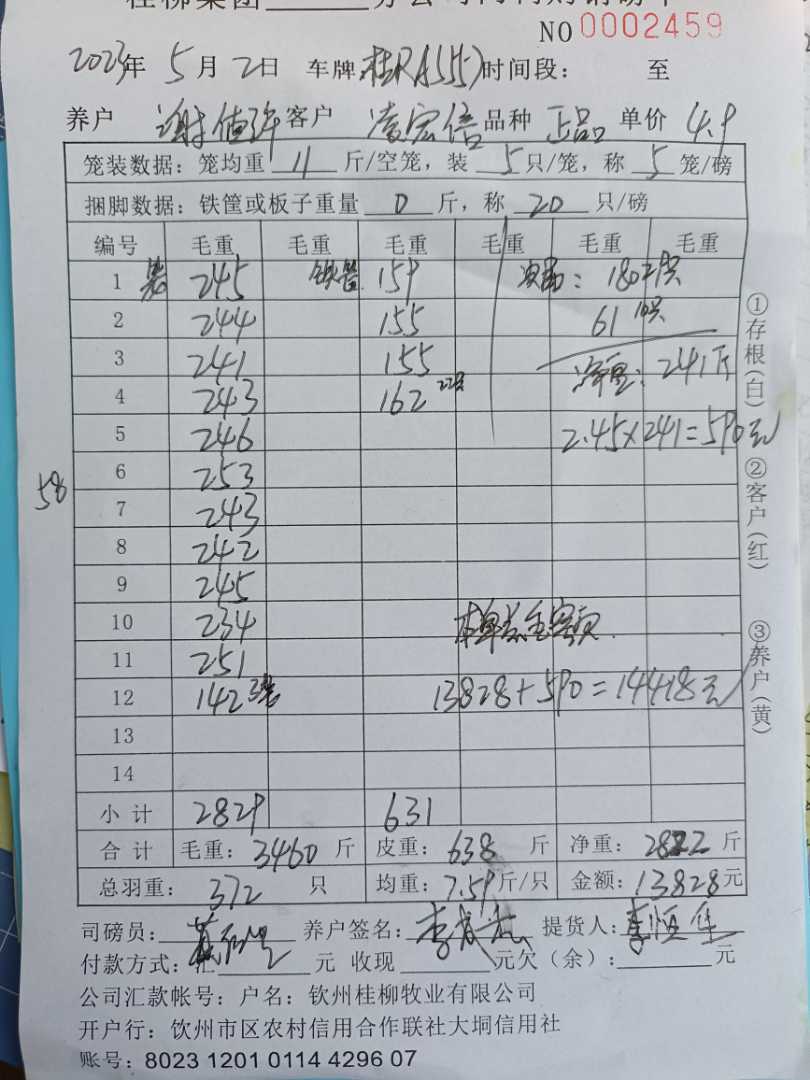 NO 0002459
2023年 5月 2日 车牌 桂R 时间段： 至
养户 谢值 客户 凌宏信 品种 正品 单价 4.9
笼装数据：笼均重 11 斤/空笼，装 5 只/笼，称 5 笼/磅
捆脚数据：铁筐或板子重量 0 斤，称 20 只/磅
编号 毛重 毛重 毛重 毛重 毛重 毛重
1 245 159 次品：180 只
2 244 155 61
3 241 155 净重：241斤
4 243 162
5 246 2.45×241=590元
6 253
58
7 243
8 242
9 245
10 234 本单总金额
11 251
12 142 13828+590=14418元
13
14
小计 2829 631
合计 毛重：3460 斤 皮重：638 斤 净重：2822 斤
总羽重： 372 只 均重：7.59斤/只 金额：13828元
司磅员： 养户签名： 提货人：李恒华
付款方式：汇 元 收现 元欠（余）： 元
公司汇款帐号：户名：钦州桂柳牧业有限公司
开户行：钦州市区农村信用合作联社大垌信用社
账号：8023 1201 0114 4296 07
①存根（白）
②客户（红）
③养户（黄）